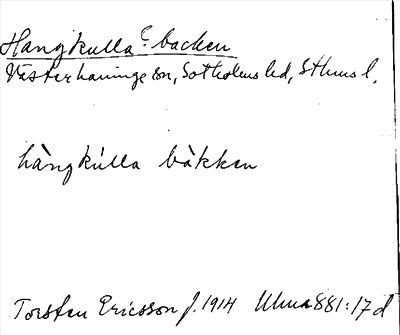 Hangkulla backen
Västerhaninge sn, Sotholms hd, Sthms l.
hàngkúlla bàkken
Torsten Ericsson f. 1914 Ulma 881:17 d